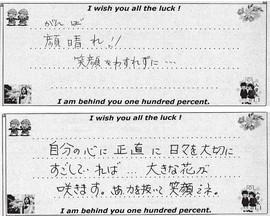 I wish you all the luck !
がんば
顔晴れ!!
笑顔をわすれずに…
I am behind you one hundred percent.
I wish you all the luck !
自分の心に正直に日々を大切に
すごしていれば…大きな花が
咲きます。肩の力を抜いて笑顔でネ。
I am behind you one hundred percent.